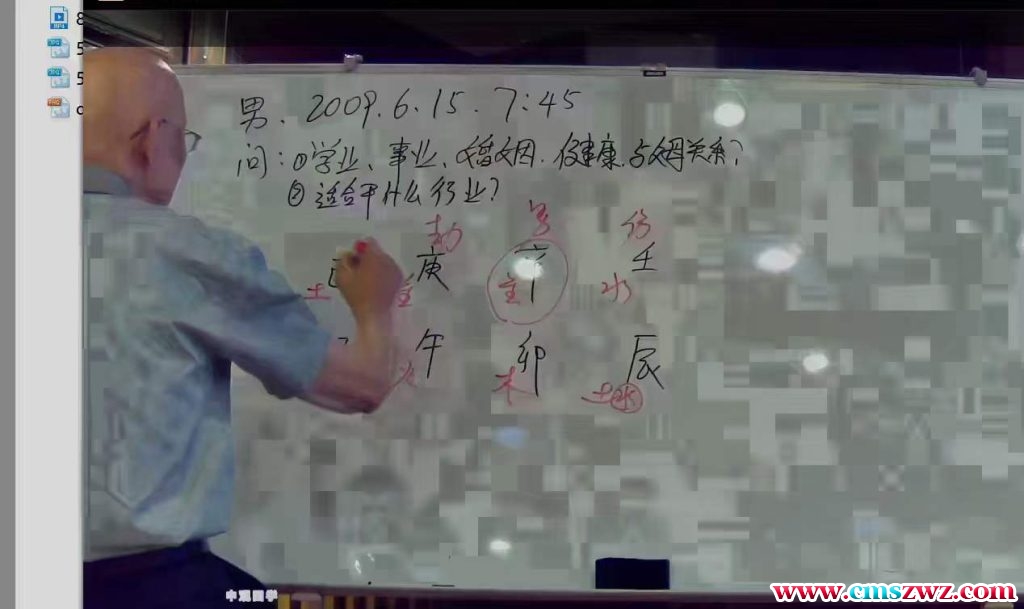 8
5
5
男. 2009.6.15.7:45
问:①学业、事业、婚姻.健康.与关系?
②适合干什么行业?
劫 伤
庚 辛 壬
土 金 金 水
午 卯 辰
火 木 土水
www.cmszwz.com